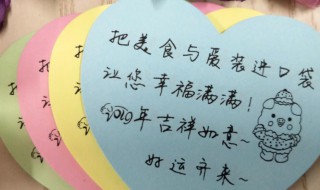 把美食与爱装进口袋
让您幸福满满！
2019年吉祥如意~
好运开来~